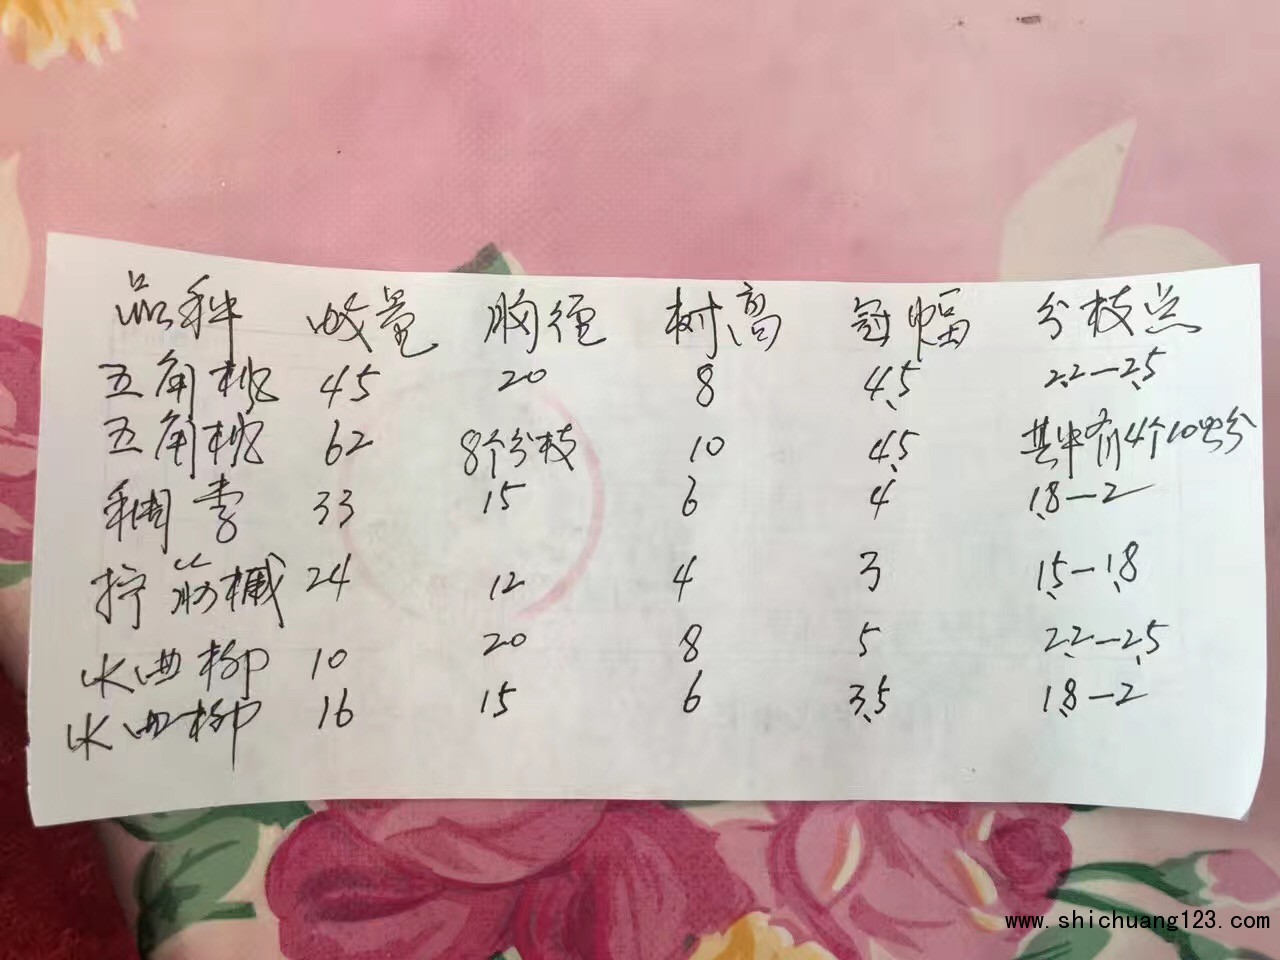 品种 数量 胸径 树高 冠幅 分枝点
五角枫 45 20 8 4.5 2.2—2.5
五角枫 62 8个分枝 10 4.5 其中有4个10分
稠李 33 15 6 4 1.8—2
拧筋槭 24 12 4 3 1.5—1.8
水曲柳 10 20 8 5 2.2—2.5
水曲柳 16 15 6 3.5 1.8—2
www.shichuang123.com